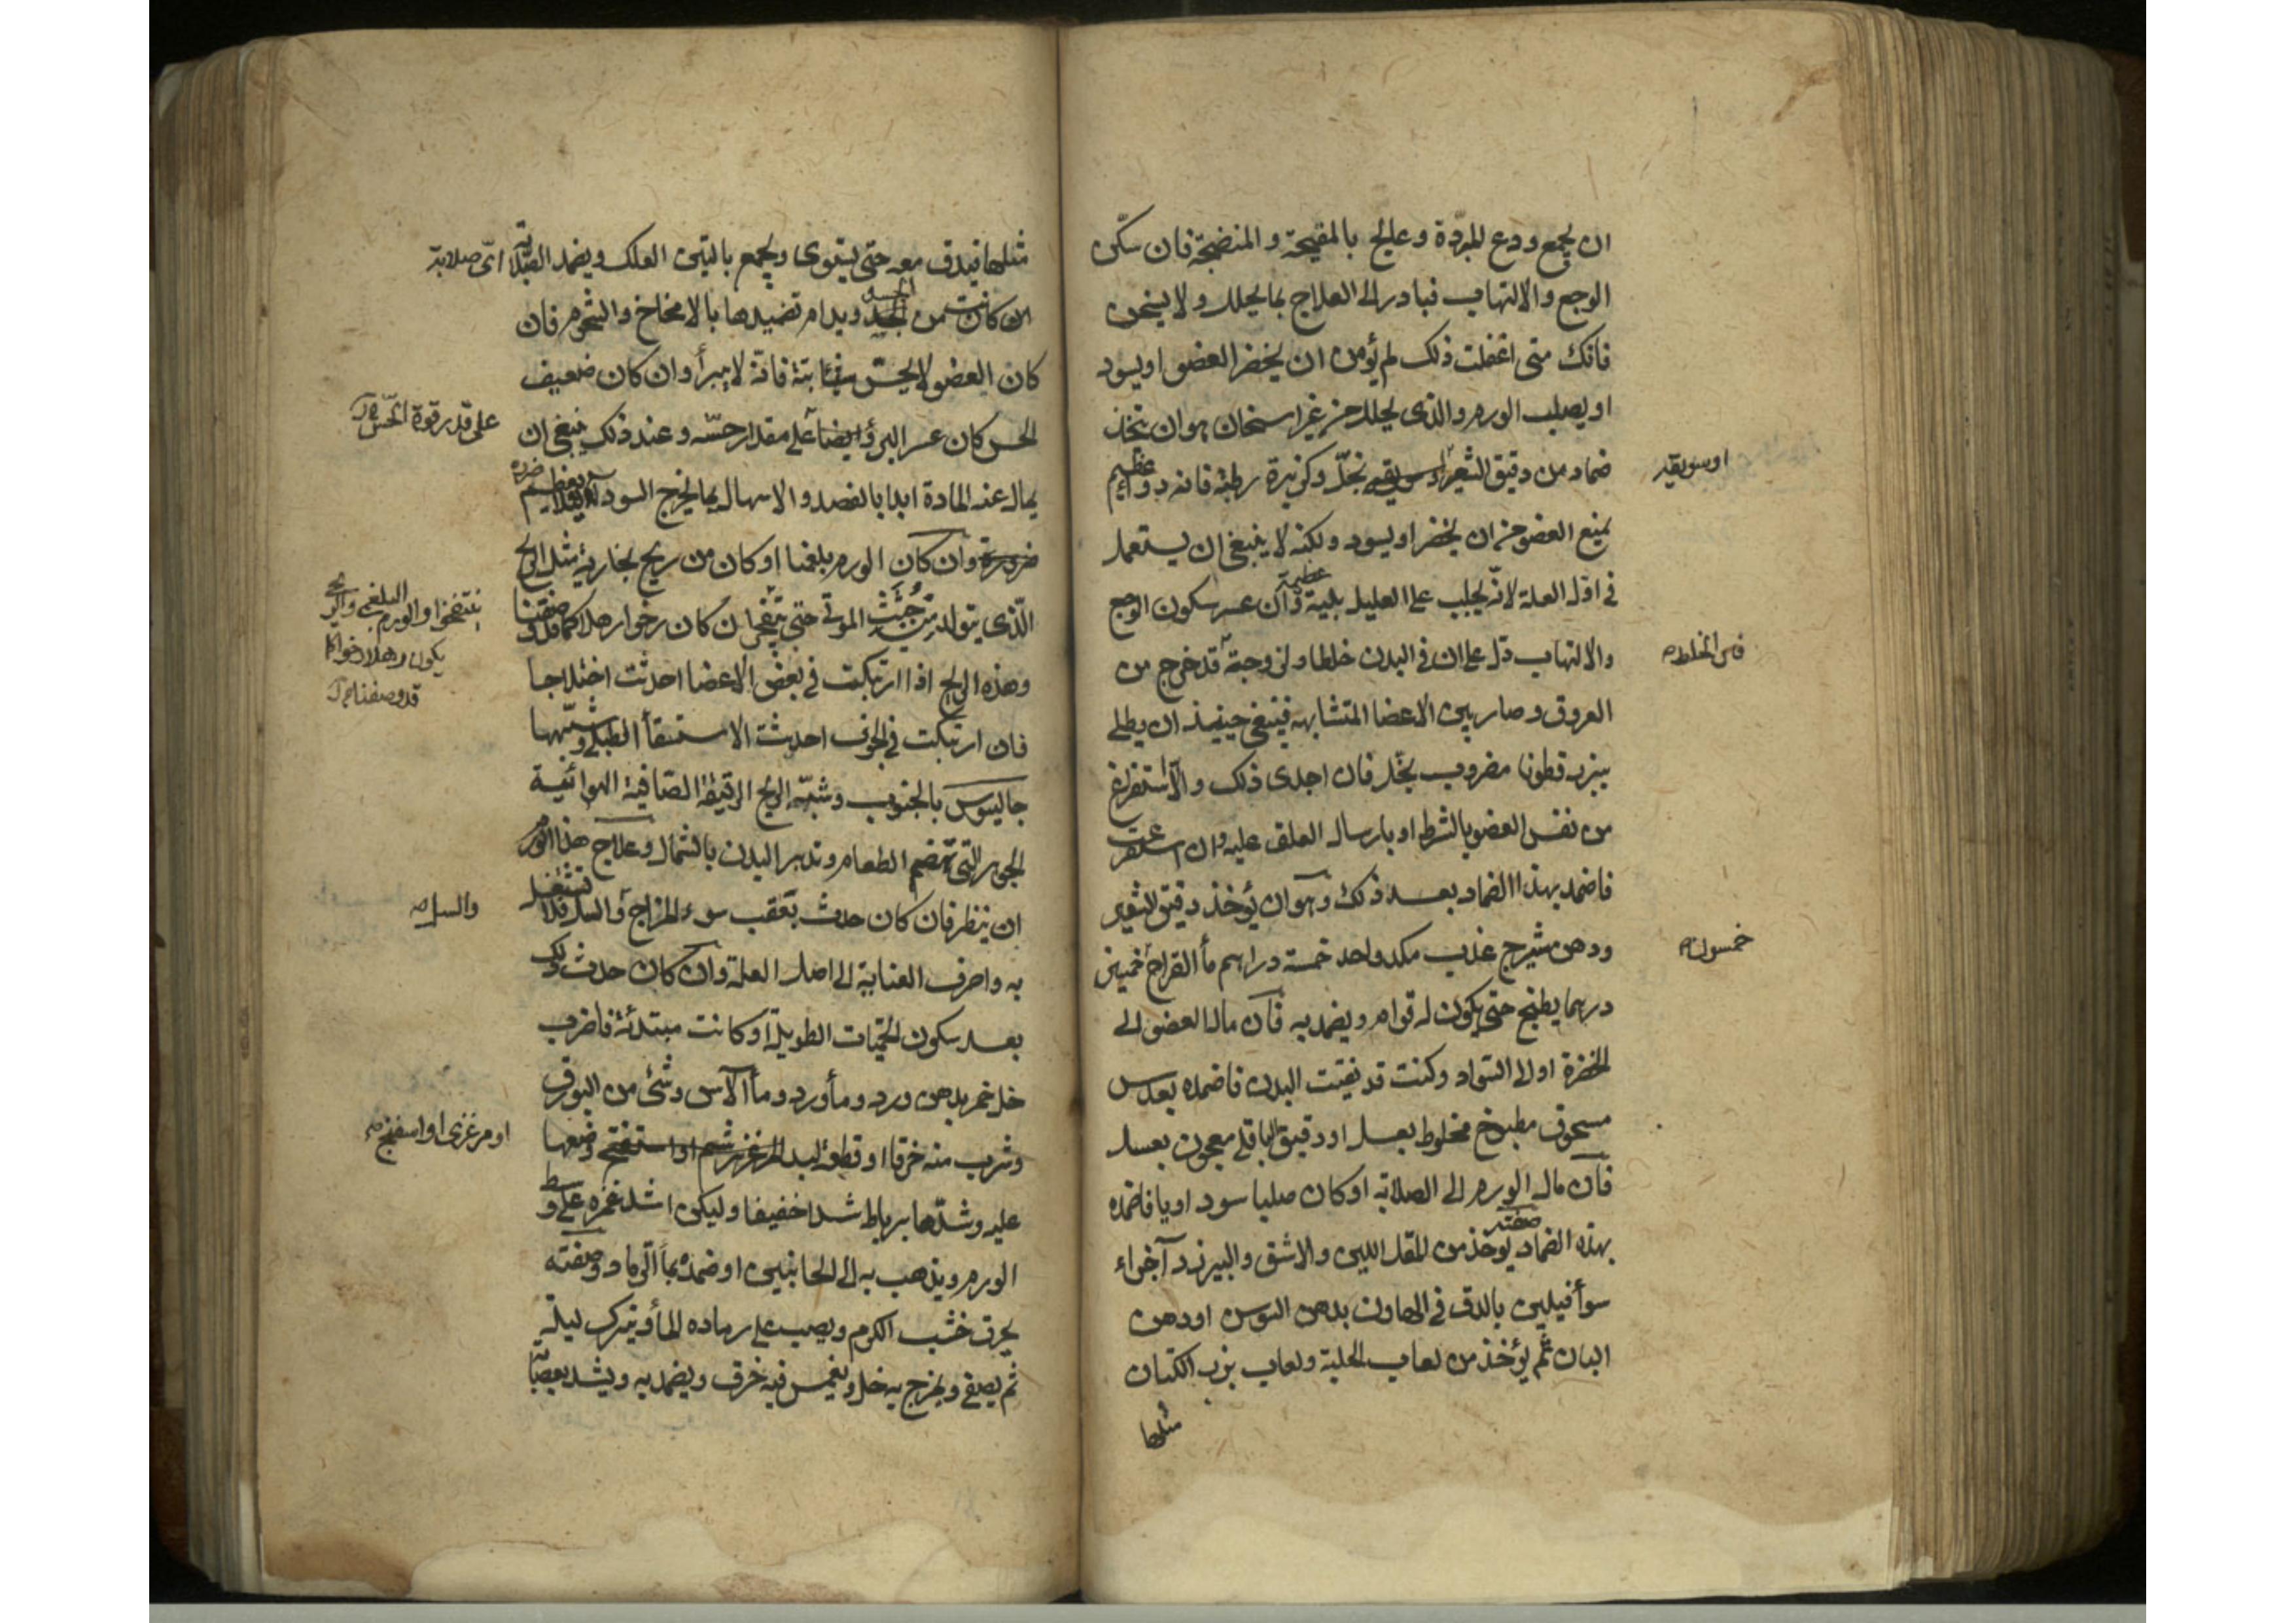 ان يجمع ودع المبردة وعالج بالمقيحة والمنضجة فان سكّن
الوجع والالتهاب فبادر الى العلاج بما يحلل ولا يسخن
فانك متى اغفلت ذلك لم يؤمن ان يخضر العضو او يسود
او يصلب الورم والذى يحلل من غير اسخان هو ان تتخذ
ضماد من دقيق الشعير بخلّ وكزبرة رطبة فانه دواء عظيم
اوسويقه
يمنع العضو من ان يخضر او يسود ولكنه لا ينبغى ان يستعمل
فى اول العلة لانّه يجلب على العليل بلية عظيمة وان عسر سكون الوجع
والالتهاب دل على ان فى البدن خلطا ولى وجبة قد خرج من
العروق وصار بين الاعضا المتشابهه فينبغى حينيذ ان يطلى
ببزر قطونا مضروب بخل فان اجدى ذلك والا استفرغ
من نفس العضو بالشرط او بارسال العلق عليه وان استفرغت
فاضمد بهذا الضماد بعد ذلك وهو ان يؤخذ دقيق الشعير
ودهن شيرج عذب مكد واحد خمسة دراهم مأ القراح خمسين
خمسون
درهما يطبخ حتى يكون له قوام ويضمد به فان مال العضو الى
الخضرة او الى السواد وكنت قد نقيت البدن فاضمده بعدس
مسحوق مطبوخ مخلوط بعسل او دقيق الباقلى معجون بعسل
فان مال الورم الى الصلابة او كان صلبا سوداويا فاضمده
بهذه الضماد صفته يؤخذ من المقل اللين والاشق والبيرزد آجزاء
سوأ فيلين بالدق فى الهاون بدهن السوسن او دهن
البان ثم يؤخذ من لعاب الحلبة ولعاب بزر الكتان
مثلها
مثلها فيدق معه حتى يستوى ويجمع بالتين العلك ويضمد الصلابة اىّ صلابة
ان كانت من الجسد ويدام تضميدها بالامخاخ والشحوم فان
كان العضو لا يحسّ بتة فانّه لا يبرأ وان كان ضعيف
الحس كان عسر البرؤ على مقدار حسّه وعند ذلك ينبغى ان
على قدر قوة الحس
يمال عنه المادة ابدا بالفصد والاسهال بما يخرج السودا
وان كان الورم بلغميا او كان من ريح بخارية مثل الريح
الّذى يتولد من جثث الموتى حتى تنتفخ ان كان رخوا رهلا كما قد وصفنا
يكون رهلا رخوا كما
قد وصفنا
وهذه الريح اذا ارتبكت فى بعض الاعضا احدثت اختلاجا
فان ارتبكت فى الجوف احدثت الاستسقأ الطبلى وشبّهها
جالينوس بالجنوب وشبّه الريح الرقيقة الصافية الهوائية
الجوهر التى تهضم الطعام وتدبر البدن بالشمال وعلاج هذا الورم
ان ينظر فان كان حدث بعقب سوء المزاج والسل فلا تشتغل
والسل
به واصرف العناية الى اصل العلة وان كان حدث ذلك
بعد سكون الحميات الطويلة او كانت مبتدئة فاضرب
خل خمر بدهن ورد ومأ ورد ومأ الآس وشئ من البورق
وشرب منه خرقا او قطعة لبد وضعها
او مرغزى او اسفنج
عليه وشدّها برباط شدا خفيفا وليكن اشد غمزه على وسط
الورم ويذهب به الى الجانبين او ضمده بمأ الرماد وصفته
يحرق خشب الكرم ويصب على رماده المأ ويترك ليلة
ثم يصفى ويمزج به خل ويغمس فيه خرق ويضمد به ويشد بعصاب